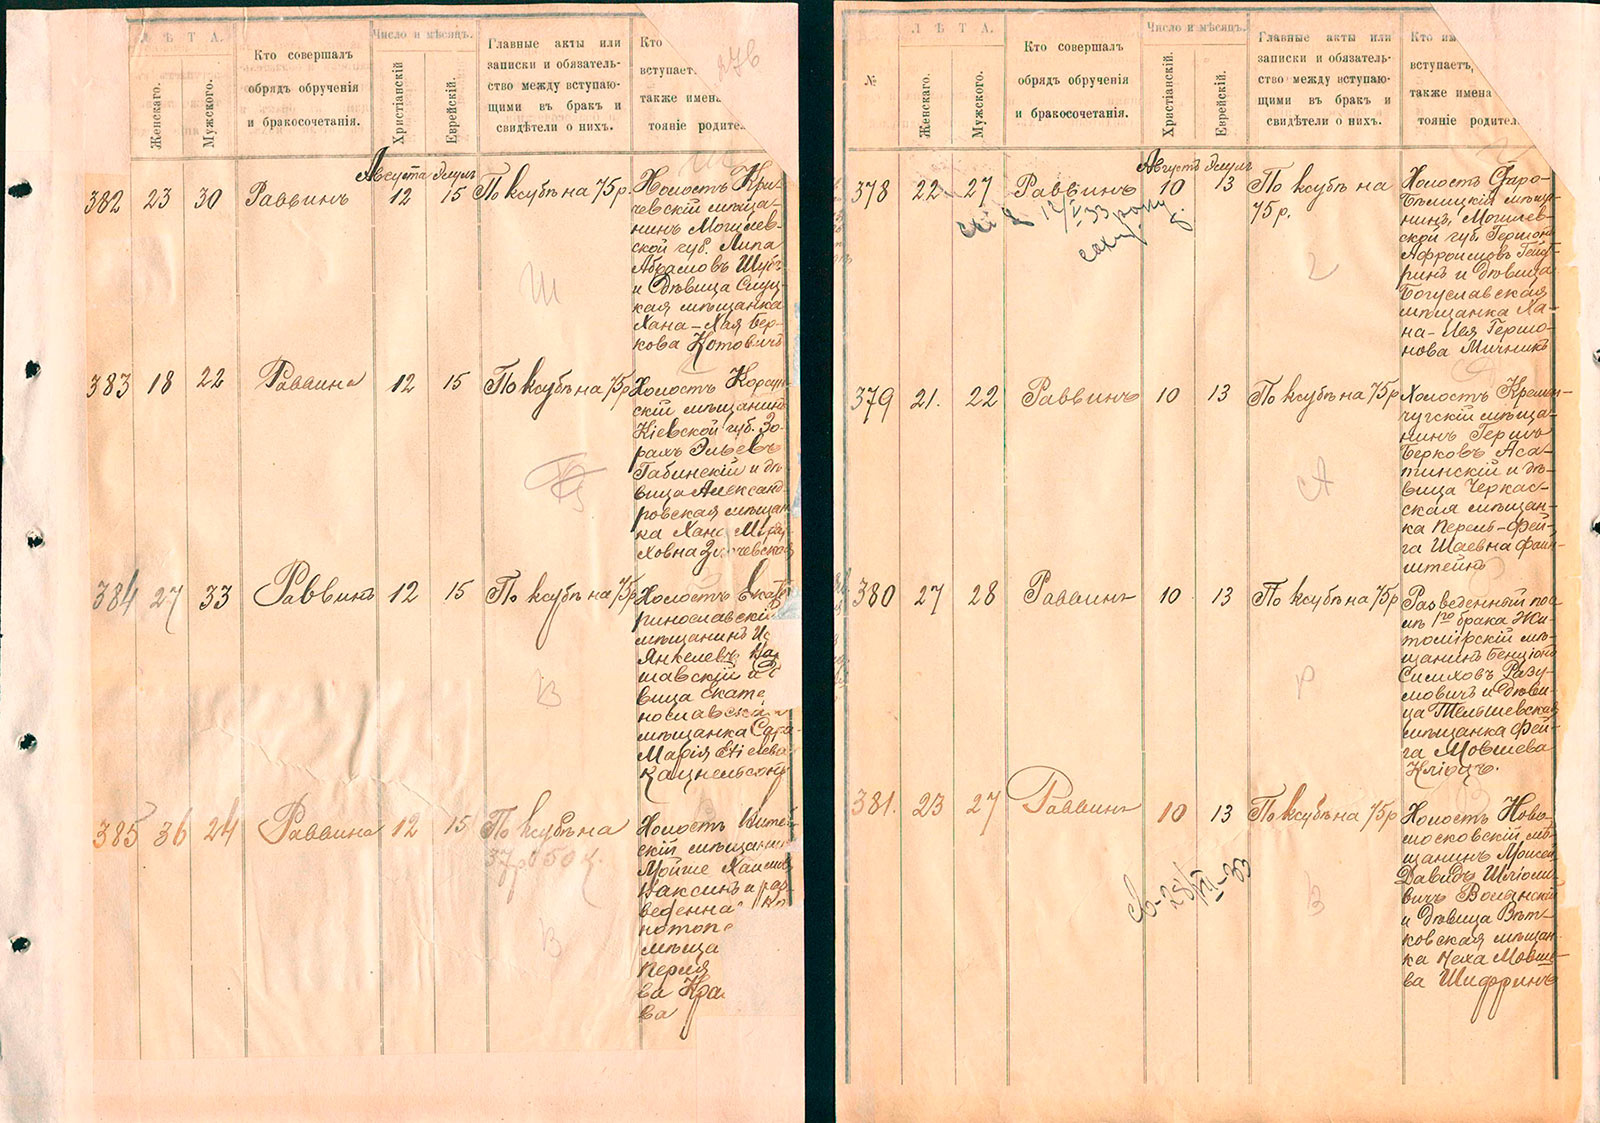 Л Ѣ Т А.
Женскаго.
Мужского.
Кто совершалъ
обрядъ обрученія
и бракосочетанія.
Число и мѣсяцъ.
Христіанскій
Еврейскій.
Главные акты или
записки и обязатель-
ство между вступаю-
щими въ бракъ и
свидѣтели о нихъ.
Кто
вступаетъ,
также имена
тояніе родител
276
Августа Элулъ
382 23 30 Раввинъ 12 15 По ксубѣ на 75 р.
Холостъ Кри-
чевскій мѣща-
нинъ Могилев-
ской губ. Липа
Абрамовъ Шубъ
и дѣвица Слуц-
кая мѣщанка
Хана-Хая Бер-
кова Котовичъ
Ш
383 18 22 Раввина 12 15 По ксубѣ на 75 р
Холостъ Корсун
скій мѣщанинъ
Кіевской губ. Зо-
рахъ Эльевъ
Табинскій и дѣ-
вица Александ-
ровская мѣщан
ка Хана
ховна
384 27 33 Раввинъ 12 15 По ксубѣ на 75 р
Холостъ Екате
ринославскій
мѣщанинъ Ис
Янкелевъ
шавскій и д
вица Екате
нославска
мѣщанка Сара-
Марія
Кацнельсонъ
В
385 36 24 Раввина 12 15 По ксубѣ на
37 р 50 к.
Холостъ Вите
скій мѣщанинъ
Мойше Хаимов
Ваксинъ и раз-
веденна
нотопс
мѣща
Перля
ва Кра
ва
В
№
Л Ѣ Т А.
Женскаго.
Мужского.
Кто совершалъ
обрядъ обрученія
и бракосочетанія.
Число и мѣсяцъ.
Христіанскій
Еврейскій.
Главные акты или
записки и обязатель-
ство между вступаю-
щими въ бракъ и
свидѣтели о нихъ.
Кто им
вступаетъ,
также имена
тояніе родител
Августъ Элулъ
378 22 27 Раввинъ 10 13 По ксубѣ на
75 р.
12/V 33
Холостъ Старо-
Быхицкій мѣща-
нинъ, Могилев-
ской губ. Гершонъ
Афроимовъ
ринъ и дѣвица
Богуславская
мѣщанка Ха-
на-Лея Гершо-
нова Мичникъ
379 21. 22 Раввинъ 10 13 По ксубѣ на 75 р
Холостъ Кремен-
чугскій мѣща-
нинъ Герцъ
Берковъ Аса-
тинскій и дѣ-
вица Черкас-
ская мѣщан-
ка Перель-Фей-
га Шаевна Фаин-
штейнъ
380 27 28 Раввинъ 10 13 По ксубѣ на 75 р
Разведенный пос
лѣ 1го брака Жи-
томірскій мѣ-
щанинъ Бенціонъ
Симховъ Разу-
мовичъ и дѣви-
ца Тельшевская
мѣщанка Фей-
га Мовшева
Кліоцъ.
Р
381. 23 27 Раввинъ 10 13 По ксубѣ на 75 р
28/VII-33
Холостъ Ново-
московскій мѣ-
щанинъ Моисей
Давидъ Шліоми-
вичъ Волынскій
и дѣвица Вѣт-
ковская мѣщан-
ка Неха Мовше-
ва Шифринъ
В